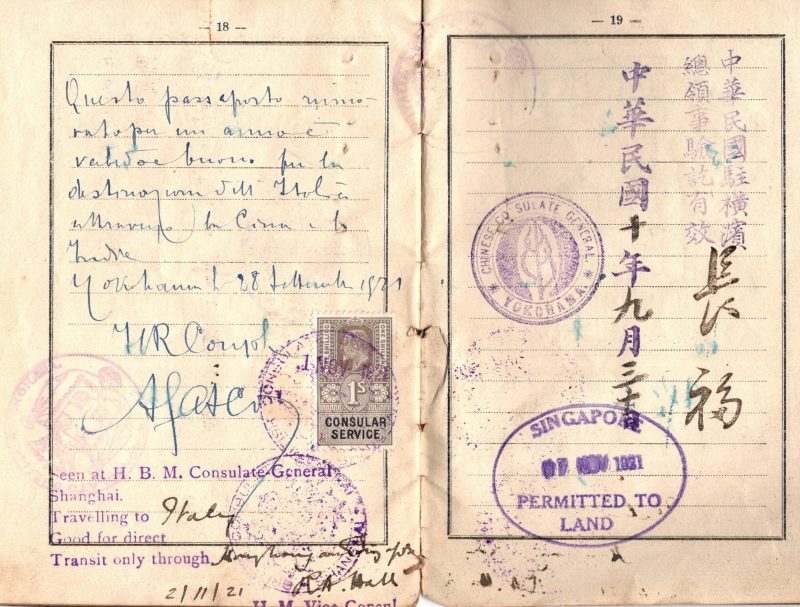 — 18 —
Questo passaporto rinno-
vato per un anno è
valido e buono per la
destinazione dell' Italia
attraverso la Cina e le
Indie
Yokohama li 28 Settembre 1921
1 NOV 1921
1S
CONSULAR
SERVICE
Seen at H. B. M. Consulate-General
Shanghai.
Travelling to Italy
Good for direct
Transit only through Hongkong and Singapore
2/11/21
H. M. Vice Consul
— 19 —
中華民國駐橫濱
總領事驗訖有效
長福
中華民國十年九月三十日
CHINESE CONSULATE GENERAL.
YOKOHANA.
SINGAPORE
07 NOV 1921
PERMITTED TO
LAND